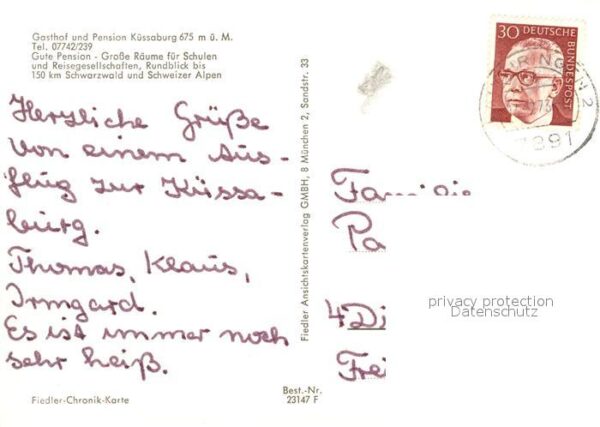 Gasthof und Pension Küssaburg 675 m ü. M.
Tel. 07742/239
Gute Pension - Große Räume für Schulen
und Reisegesellschaften, Rundblick bis
150 km Schwarzwald und Schweizer Alpen
Herzliche Grüße
von einem Aus-
flug zur Küssa-
burg.
Thomas, Klaus,
Irmgard.
Es ist immer noch
sehr heiß.
Fiedler-Chronik-Karte
Best.-Nr.
23147 F
Fiedler Ansichtskartenverlag GMBH, 8 München 2, Sandstr. 33
30
DEUTSCHE
BUNDESPOST
7891
Familie
Pa
4 Di
Frei
privacy protection
Datenschutz